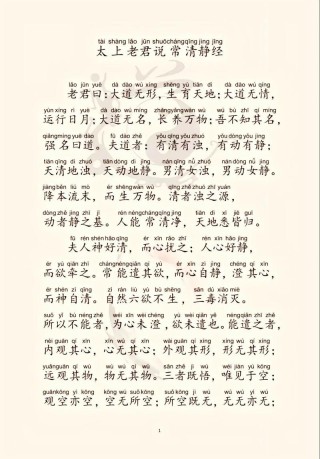 tài shàng lǎo jūn shuō cháng qīng jìng jīng
太上老君说常清静经
lǎo jūn yuē dà dào wú xíng shēng yù tiān dì dà dào wú qíng
老君曰:大道无形,生育天地;大道无情,
yùn xíng rì yuè dà dào wú míng zhǎng yǎng wàn wù wú bù zhī qí míng
运行日月;大道无名,长养万物;吾不知其名,
qiǎng míng yuē dào fú dào zhě yǒu qīng yǒu zhuó yǒu dòng yǒu jìng
强名曰道。夫道者:有清有浊,有动有静;
tiān qīng dì zhuó tiān dòng dì jìng nán qīng nǚ zhuó nán dòng nǚ jìng
天清地浊,天动地静。男清女浊,男动女静。
jiàng běn liú mò ér shēng wàn wù qīng zhě zhuó zhī yuán
降本流末,而生万物。清者浊之源,
dòng zhě jìng zhī jī rén néng cháng qīng jìng tiān dì xī jiē guī
动者静之基。人能常清净,天地悉皆归。
fú rén shén hào qīng ér xīn rǎo zhī rén xīn hào jìng
夫人神好清,而心扰之;人心好静,
ér yù qiān zhī cháng néng qiǎn qí yù ér xīn zì jìng chéng qí xīn
而欲牵之。常能遣其欲,而心自静,澄其心,
ér shén zì qīng zì rán liù yù bù shēng sān dú xiāo miè
而神自清。自然六欲不生,三毒消灭。
suǒ yǐ bù néng zhě wéi xīn wèi chéng yù wèi qiǎn yě néng qiǎn zhī zhě
所以不能者,为心未澄,欲未遣也。能遣之者,
nèi guān qí xīn xīn wú qí xīn wài guān qí xíng xíng wú qí xíng
内观其心,心无其心;外观其形,形无其形;
yuǎn guān qí wù wù wú qí wù sān zhě jì wù wéi jiàn yú kōng
远观其物,物无其物。三者既悟,唯见于空;
guān kōng yì kōng kōng wú suǒ kōng suǒ kōng jì wú wú wú yì wú
观空亦空,空无所空;所空既无,无无亦无;
1